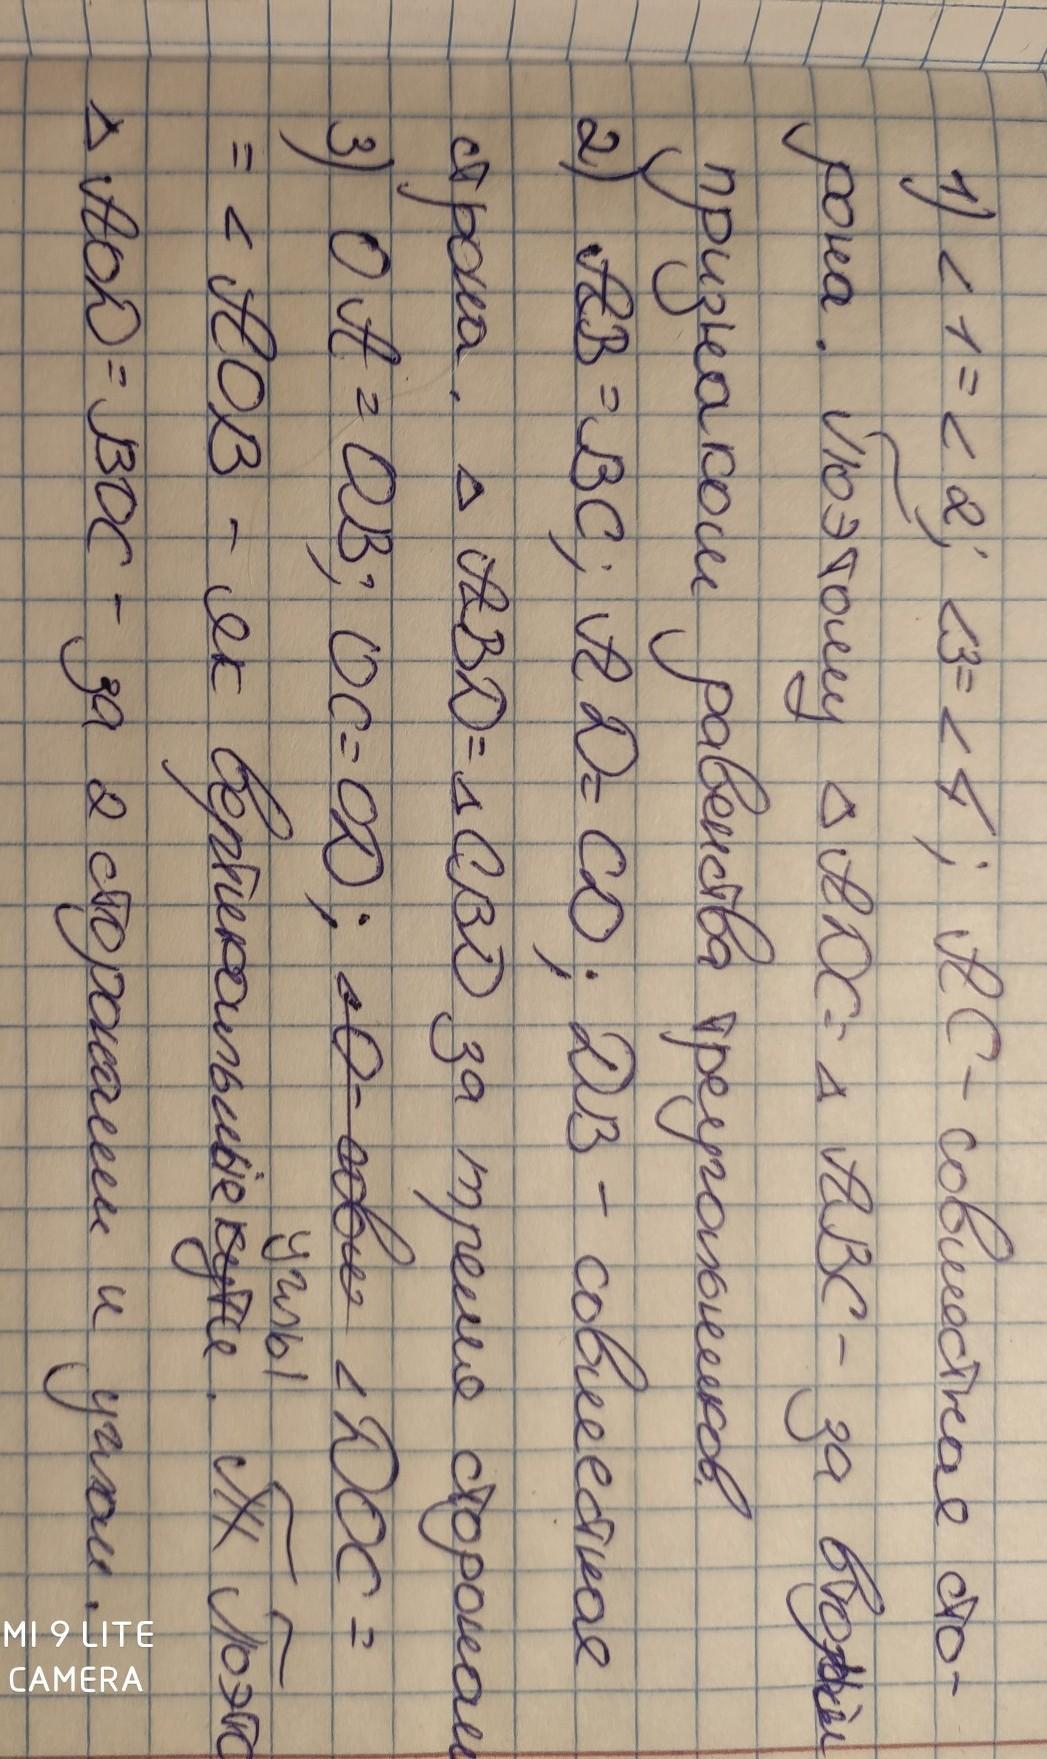 1) < 1 = < 2; < 3 = < 4; AC - совместная сто-
рона. Поэтому △ ADC = △ ABC - за
признаком равенства треугольников
2) AB = BC; AD = CD; DB - совместная
строна. △ ABD = △ CBD за тремя сторонам
3) OA = OB; OC = OD; < DOC =
углы
= < AOB - як вертикальные. Поэто
△ AOD = BOC - за 2 сторонами и углом.
MI 9 LITE
CAMERA